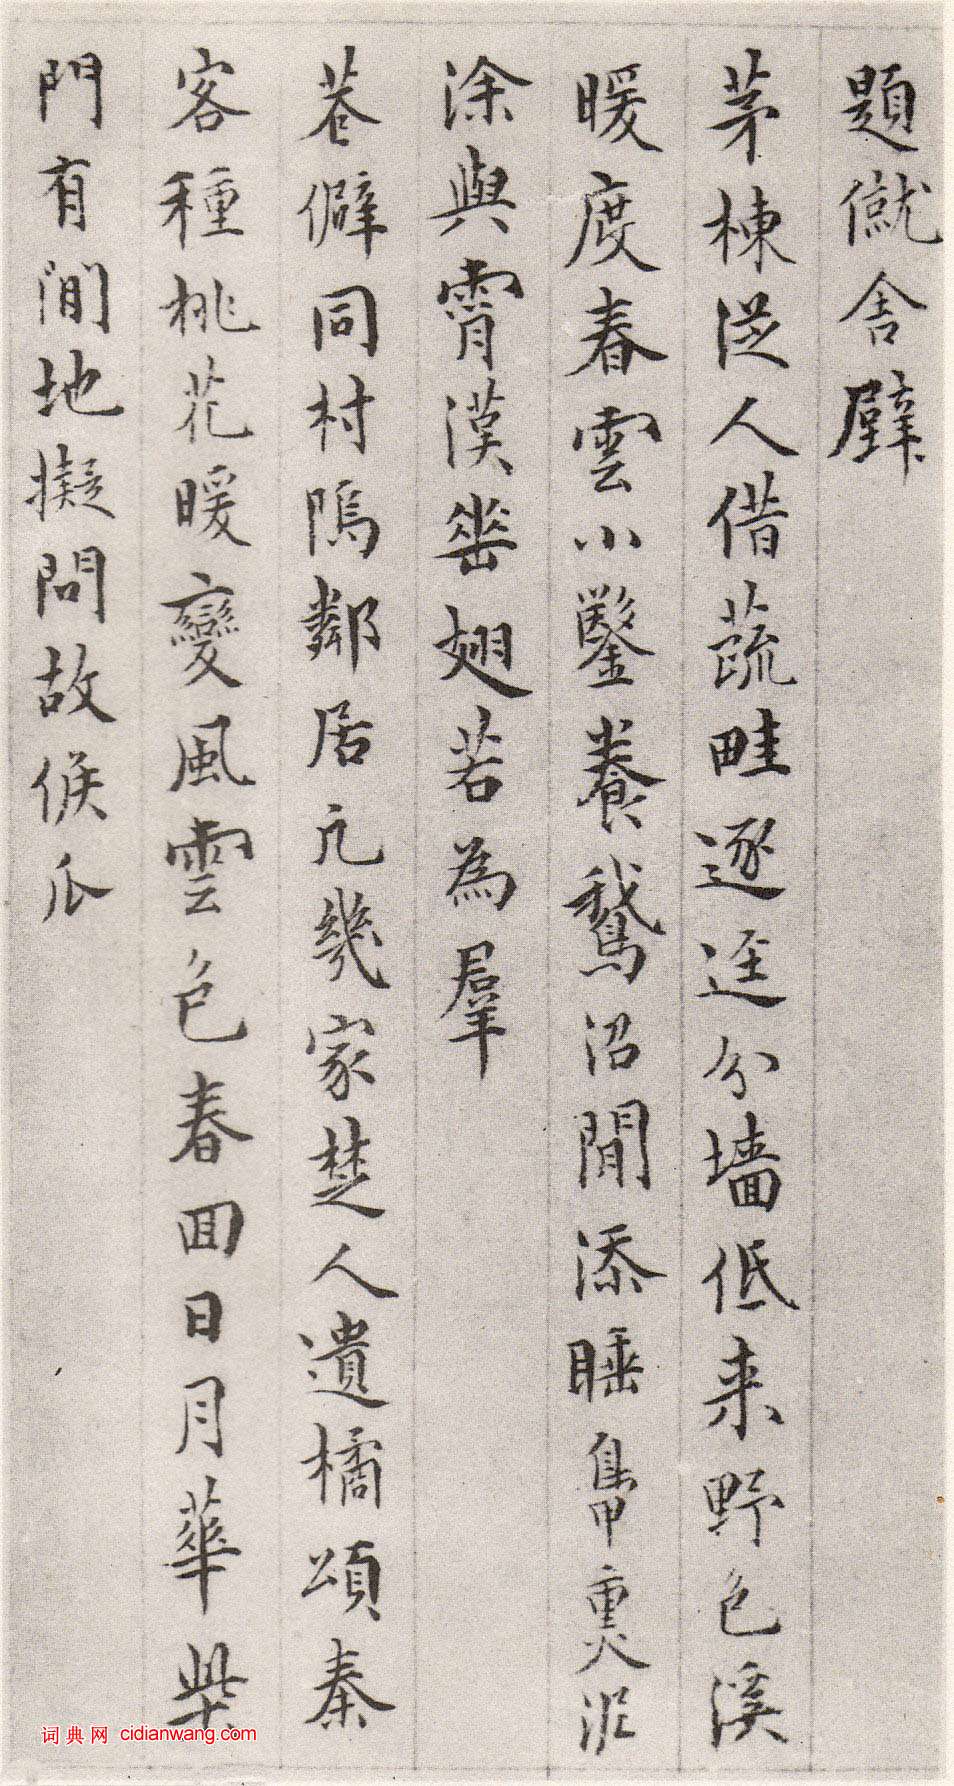 題僦舍壁
茅棟從人借蔬畦逐逕分墻低来野色溪
暖度春雲小鑿養鵞沼閒添睡鳬熏泥
涂與霄漢㟧翅若為羣
巷僻同村隖鄰居凢幾家楚人遺橘頌秦
客種桃花暖變風雲色春囬日月華柴
門有閒地擬問故侯瓜
词典网 cidianwang.com